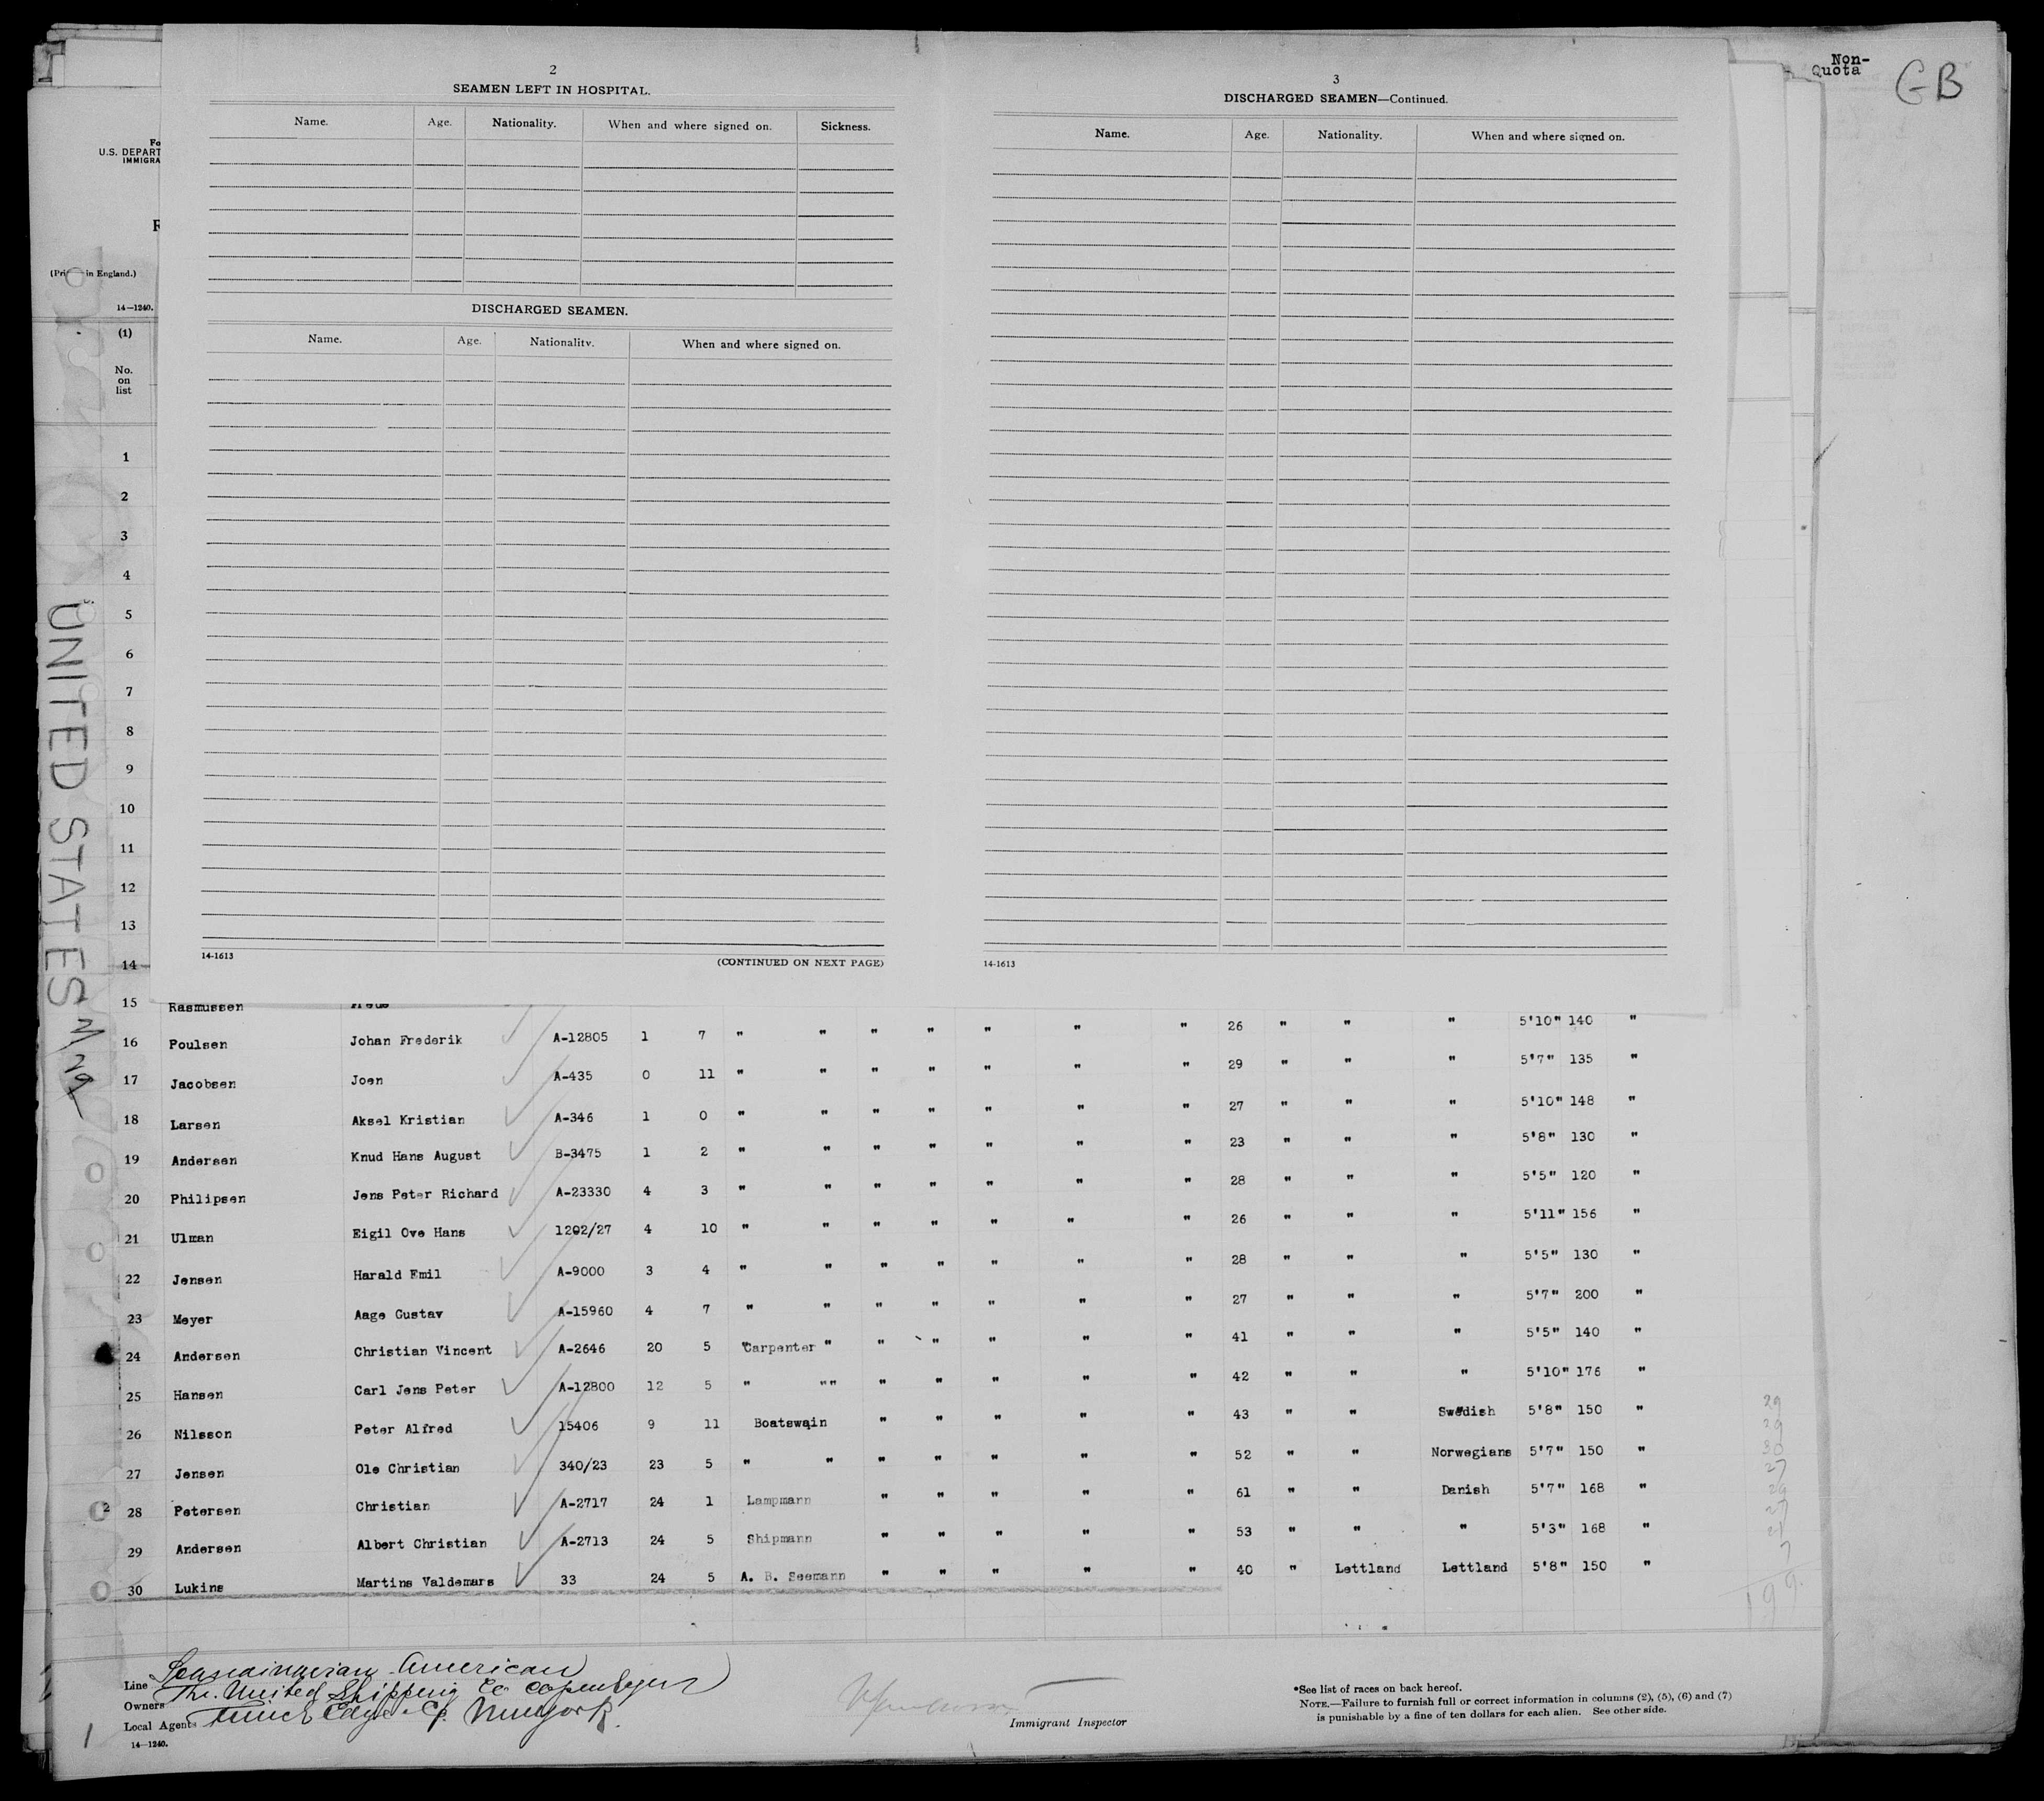 Non-
Quota
GB
2
SEAMEN LEFT IN HOSPITAL.
Name. Age. Nationality. When and where signed on. Sickness.
DISCHARGED SEAMEN.
Name. Age. Nationality. When and where signed on.
14-1613 (CONTINUED ON NEXT PAGE)
3
DISCHARGED SEAMEN—Continued.
Name. Age. Nationality. When and where signed on.
14-1613
Fo
U.S. DEPART
IMMIGRA
(Pri in England.)
14—1240.
(1)
No.
on
list
1
2
3
4
5
6
7
8
9
10
11
12
13
14
UNITED STATES
15 Rasmussen
16 Poulsen Johan Frederik A-12805 1 7 " " " " " " " 26 " " " 5'10" 140 "
17 Jacobsen Joen A-435 0 11 " " " " " " " 29 " " " 5'7" 135 "
18 Larsen Aksel Kristian A-346 1 0 " " " " " " " 27 " " " 5'10" 148 "
19 Andersen Knud Hans August B-3475 1 2 " " " " " " " 23 " " " 5'8" 130 "
20 Philipsen Jens Peter Richard A-23330 4 3 " " " " " " " 28 " " " 5'5" 120 "
21 Ulman Eigil Ove Hans 1202/27 4 10 " " " " " " " 26 " " " 5'11" 156 "
22 Jensen Harald Emil A-9000 3 4 " " " " " " " 28 " " " 5'5" 130 "
23 Meyer Aage Gustav A-15960 4 7 " " " " " " " 27 " " " 5'7" 200 "
24 Andersen Christian Vincent A-2646 20 5 "Carpenter " " " " " " 41 " " " 5'5" 140 "
25 Hansen Carl Jens Peter A-12800 12 5 " "" " " " " " 42 " " " 5'10" 176 "
26 Nilsson Peter Alfred 15406 9 11 Boatswain " " " " " 43 " " Swedish 5'8" 150 "
27 Jensen Ole Christian 340/23 23 5 " " " " " " " 52 " " Norwegians 5'7" 150 "
28 Petersen Christian A-2717 24 1 Lampmann " " " " " 61 " " Danish 5'7" 168 "
29 Andersen Albert Christian A-2713 24 5 Shipmann " " " " " 53 " " " 5'3" 168 "
30 Lukins Martins Valdemars 33 24 5 A. B. Seemann " " " " " 40 " Lettland Lettland 5'8" 150 "
199
Line Scandinavian American
Owners The United Shipping Co Copenhagen
Local Agents New York
14—1240.
Immigrant Inspector
*See list of races on back hereof.
NOTE.—Failure to furnish full or correct information in columns (2), (5), (6) and (7)
is punishable by a fine of ten dollars for each alien. See other side.